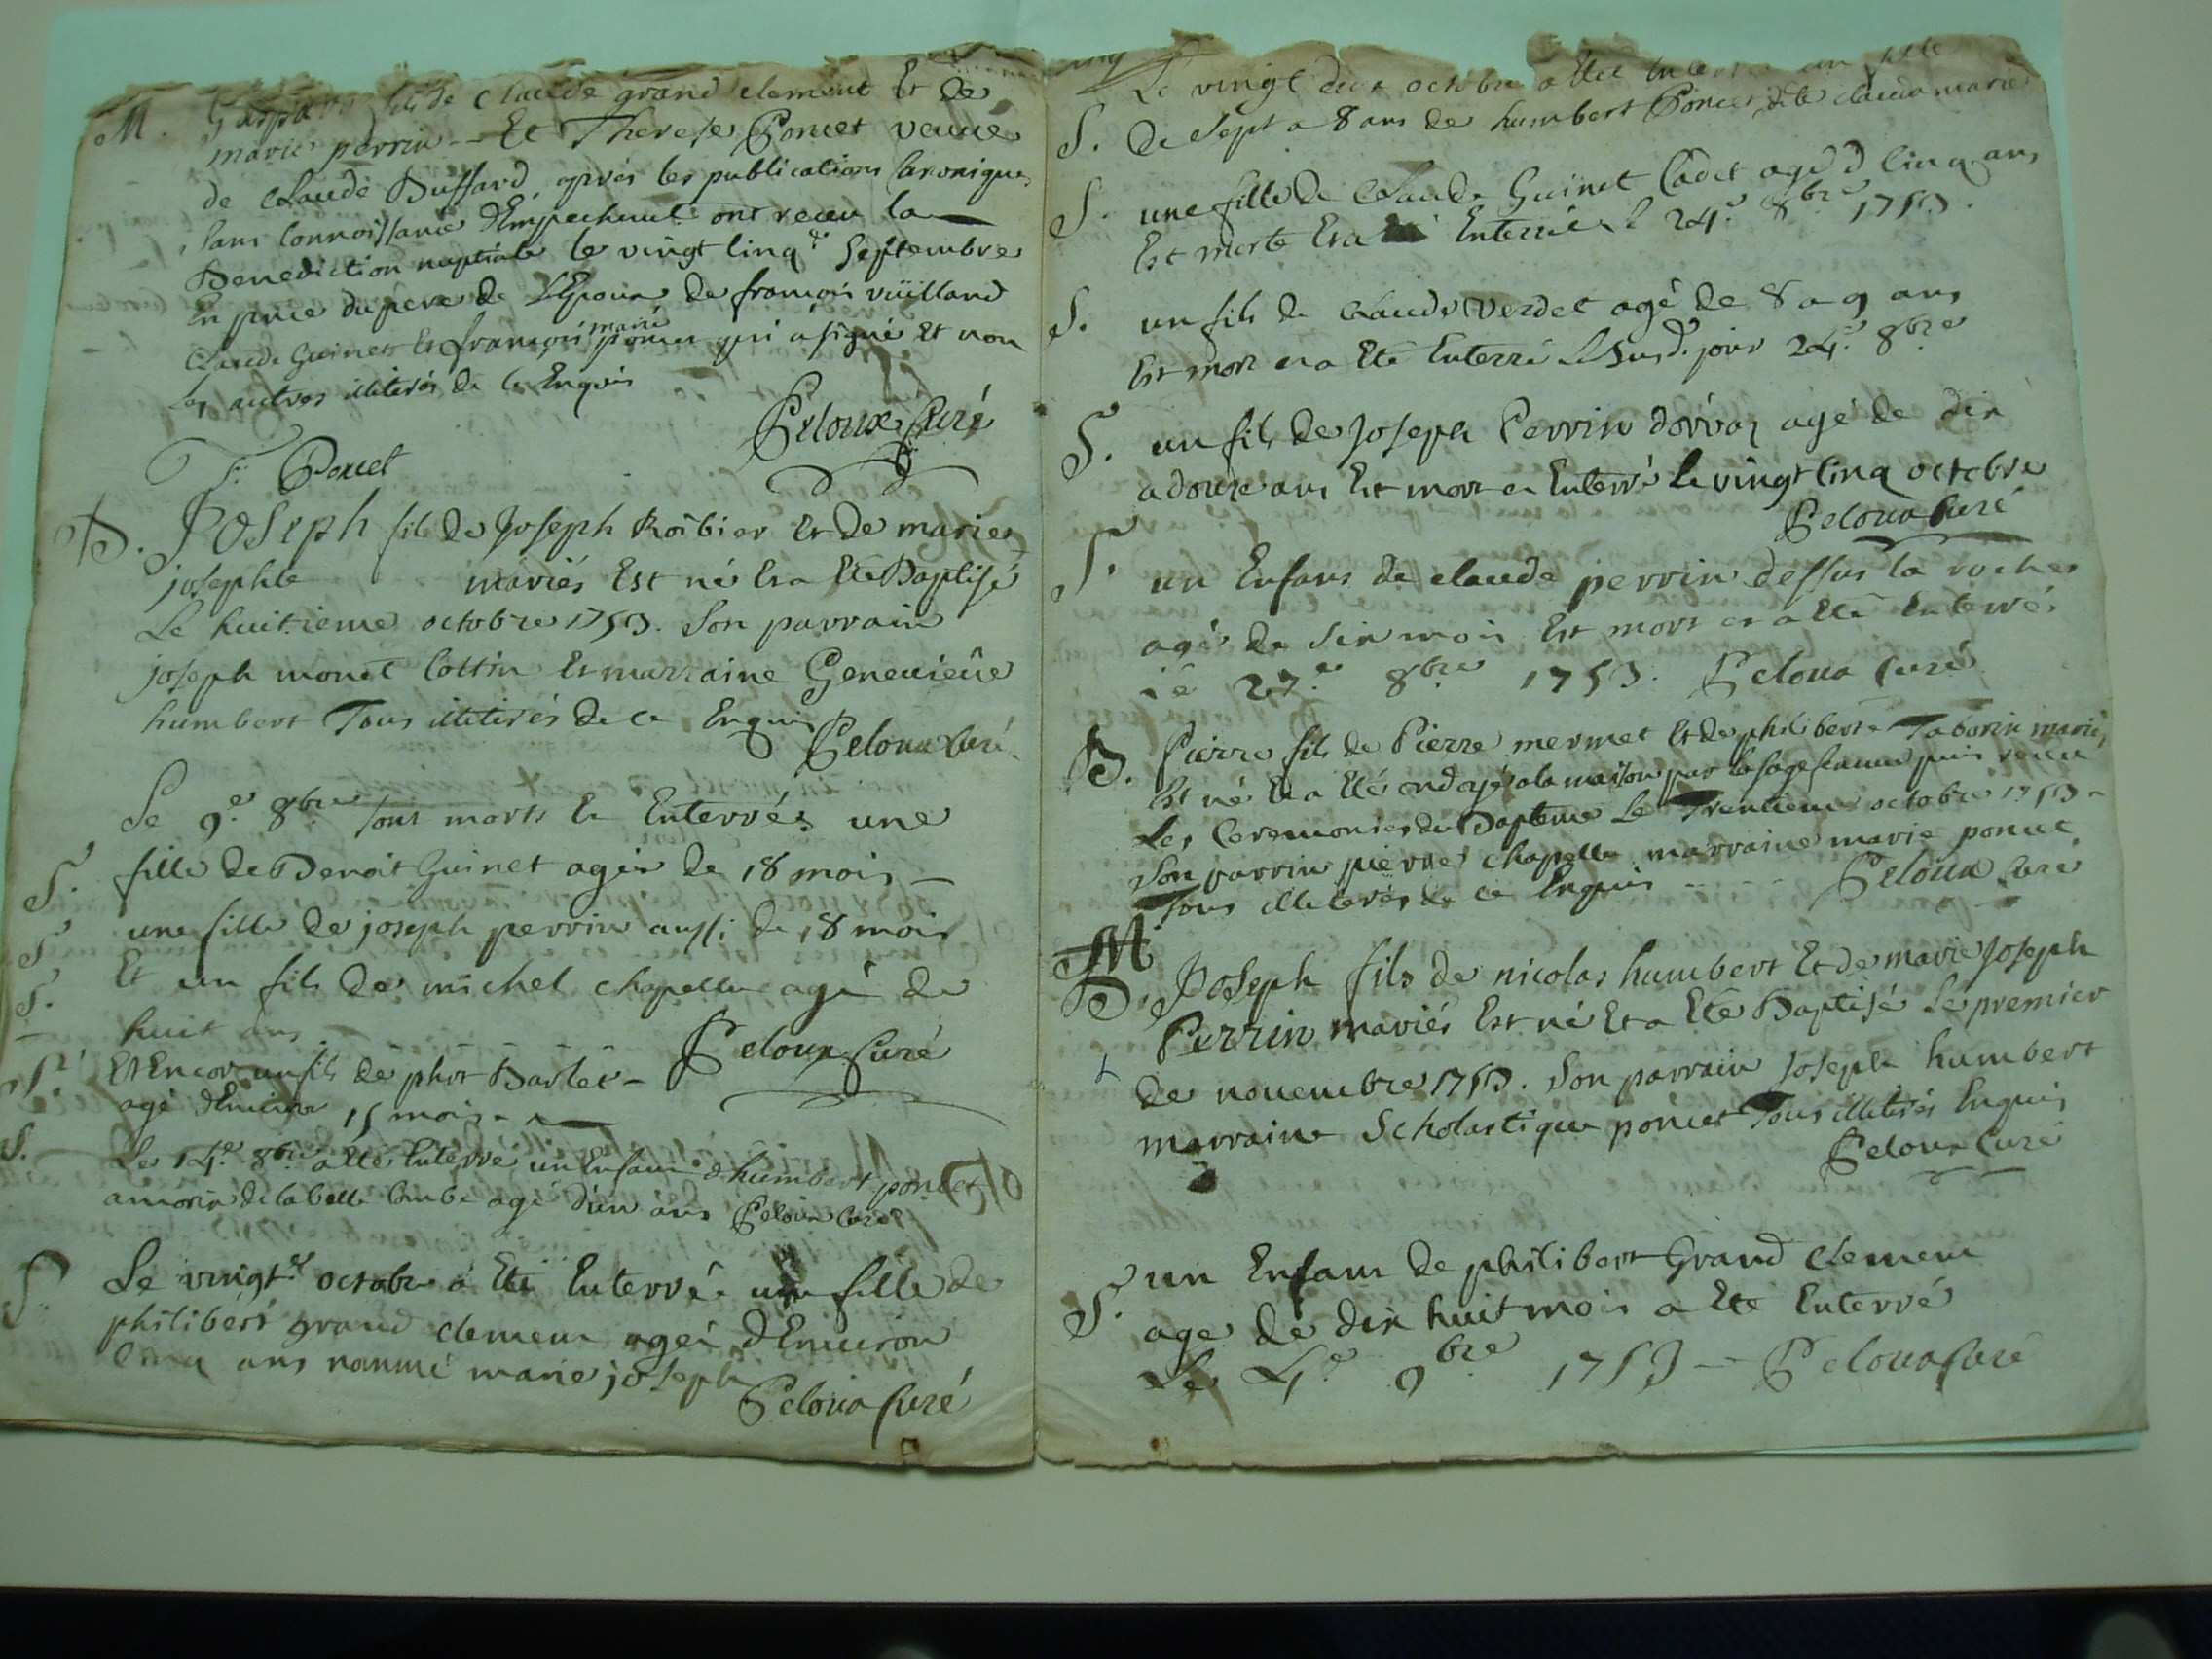 M. Gaspard fils de Claude grand clement Et de
marie perrin -- Et Therese Poncet veuve
de Claude Buffard, aprés les publications Canoniques
, sans connoissance d'Empechement ont receu la
Benediction nuptiale le vingt cinq.e Septembre
En pnce du pere de L'Epoux de françois vüilland
Claude Guinet Et françois marie poncet qui a signé Et non
les autres illiterés de ce Enquis
Peloux Curé
F. Poncet
B. Joseph fils de Joseph Roibier Et de marie
josephte mariés Est né Et a Eté Baptisé
Le huitieme octobre 1753. Son parrain
joseph monet Cottin Et marraine Genevieue
humbert Tous illiterés de ce Enquis
Peloux Curé
Le 9.e 8bre sont morts Et Enterrés une
S. fille de Benoit Guinet agée de 18 mois
S. une fille de joseph perrin aussi de 18 mois
S. Et un fils de michel chapelle agé de
huit ans
Peloux Curé
S. Et Encor un fils de phrt Barlet
agé d'Environ 15 mois
S. Le 14.e 8bre a Eté Enterré un Enfant d'humbert poncet
amorin de la belle combe agé d'un ans Peloux Curé
S. Le vingt.e octobre a Eté Enterrée une fille de
philibert grand clement agée d'Environ
cinq ans nommé marie joseph
Peloux Curé
Le vingt deux octobre a Eté Enterré une fille
S. De Sept a 8 ans de humbert Poncet dite claudamarie
S. une fille de Claude Guinet Cadet agé d cinq ans
Est morte Et a Eté Enterrée le 24.e 8bre 1753.
S. un fils de Claude Verdet agé de 8 a 9 ans
Est mort et a Eté Enterré Le Susd. jour 24.e 8bre
S. un fils de Joseph Perrin dorvaz agé de dix
a douze ans Est mort et Enterré Le vingt cinq octobre
Peloux Curé
S. un Enfans de claude perrin dessus la roche
agé de six mois Est mort et a Eté Enterré
le 27.e 8bre 1753. Peloux Curé
B. Pierre fils de Pierre mermet Et de philiberte Taborin mariés
Est né Et a Eté ondoyé a la maison par la sage femme puis receu
Les Ceremonies du Bapteme Le Trentieme octobre 1753
Son parrin pierre chapelle marraine marie poncet
Tous illiterés de ce Enquis Peloux Curé
M
B. Joseph fils de nicolas humbert Et de marie Joseph
Perrin mariés Est né Et a Eté Baptisé Le premier
de novembre 1753. Son parrain Joseph humbert
marraine Scholastique poncet Tous illiterés Enquis
Peloux Curé
S. un Enfant de philibert Grand Clement
age de dix huit mois a Eté Enterré
Le 4.e 9bre 1753 -- Peloux Curé